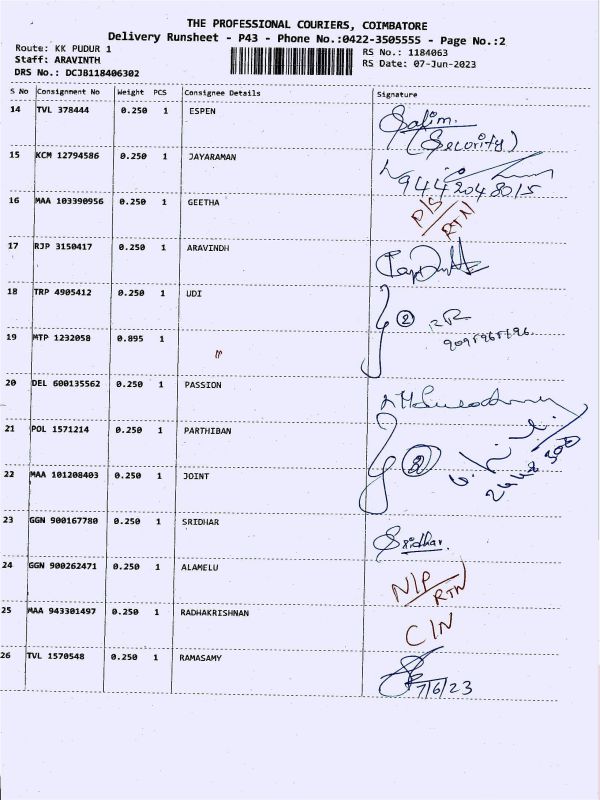 THE PROFESSIONAL COURIERS, COIMBATORE
Delivery Runsheet - P43 - Phone No.:0422-3505555 - Page No.:2
Route: KK PUDUR 1
RS No.: 1184063
Staff: ARAVINTH
RS Date: 07-Jun-2023
DRS No.: DCJB118406302
S No Consignment No Weight PCS Consignee Details Signature
14 TVL 378444 0.250 1 ESPEN Salim.
(Security)
15 KCM 12794586 0.250 1 JAYARAMAN
9442048015
16 MAA 103390956 0.250 1 GEETHA P/S
RTN
17 RJP 3150417 0.250 1 ARAVINDH
18 TRP 4905412 0.250 1 UDI
2
19 MTP 1232058 0.895 1
20 DEL 600135562 0.250 1 PASSION
21 POL 1571214 0.250 1 PARTHIBAN
22 MAA 101208403 0.250 1 JOINT
23 GGN 900167780 0.250 1 SRIDHAR Sridhar.
24 GGN 900262471 0.250 1 ALAMELU N/P
RTN
25 MAA 943301497 0.250 1 RADHAKRISHNAN C/N
26 TVL 1570548 0.250 1 RAMASAMY
7/6/23